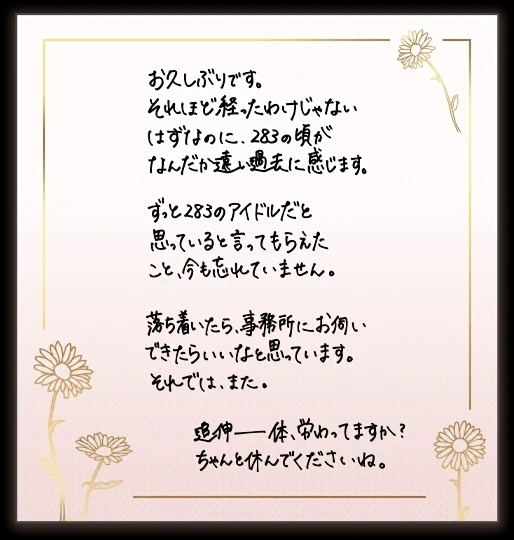 お久しぶりです。
それほど経ったわけじゃない
はずなのに、283の頃が
なんだか遠い過去に感じます。
ずっと283のアイドルだと
思っていると言ってもらえた
こと、今も忘れていません。
落ち着いたら、事務所にお伺い
できたらいいなと思っています。
それでは、また。
追伸――体、労わってますか？
ちゃんと休んでくださいね。